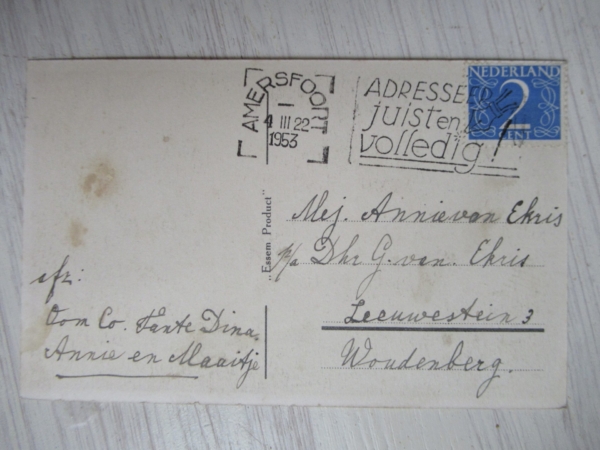 AMERSFOORT
4 III 22
1953
ADRESSEER
juist en
volledig!
NEDERLAND
2
CENT
„Essem Product”
Mej. Annie van Ekris
p/a Dhr G. van. Ekris
Leeuwestein 3
Woudenberg.
afz:
Oom Co. Tante Dina.
Annie en Maaitje